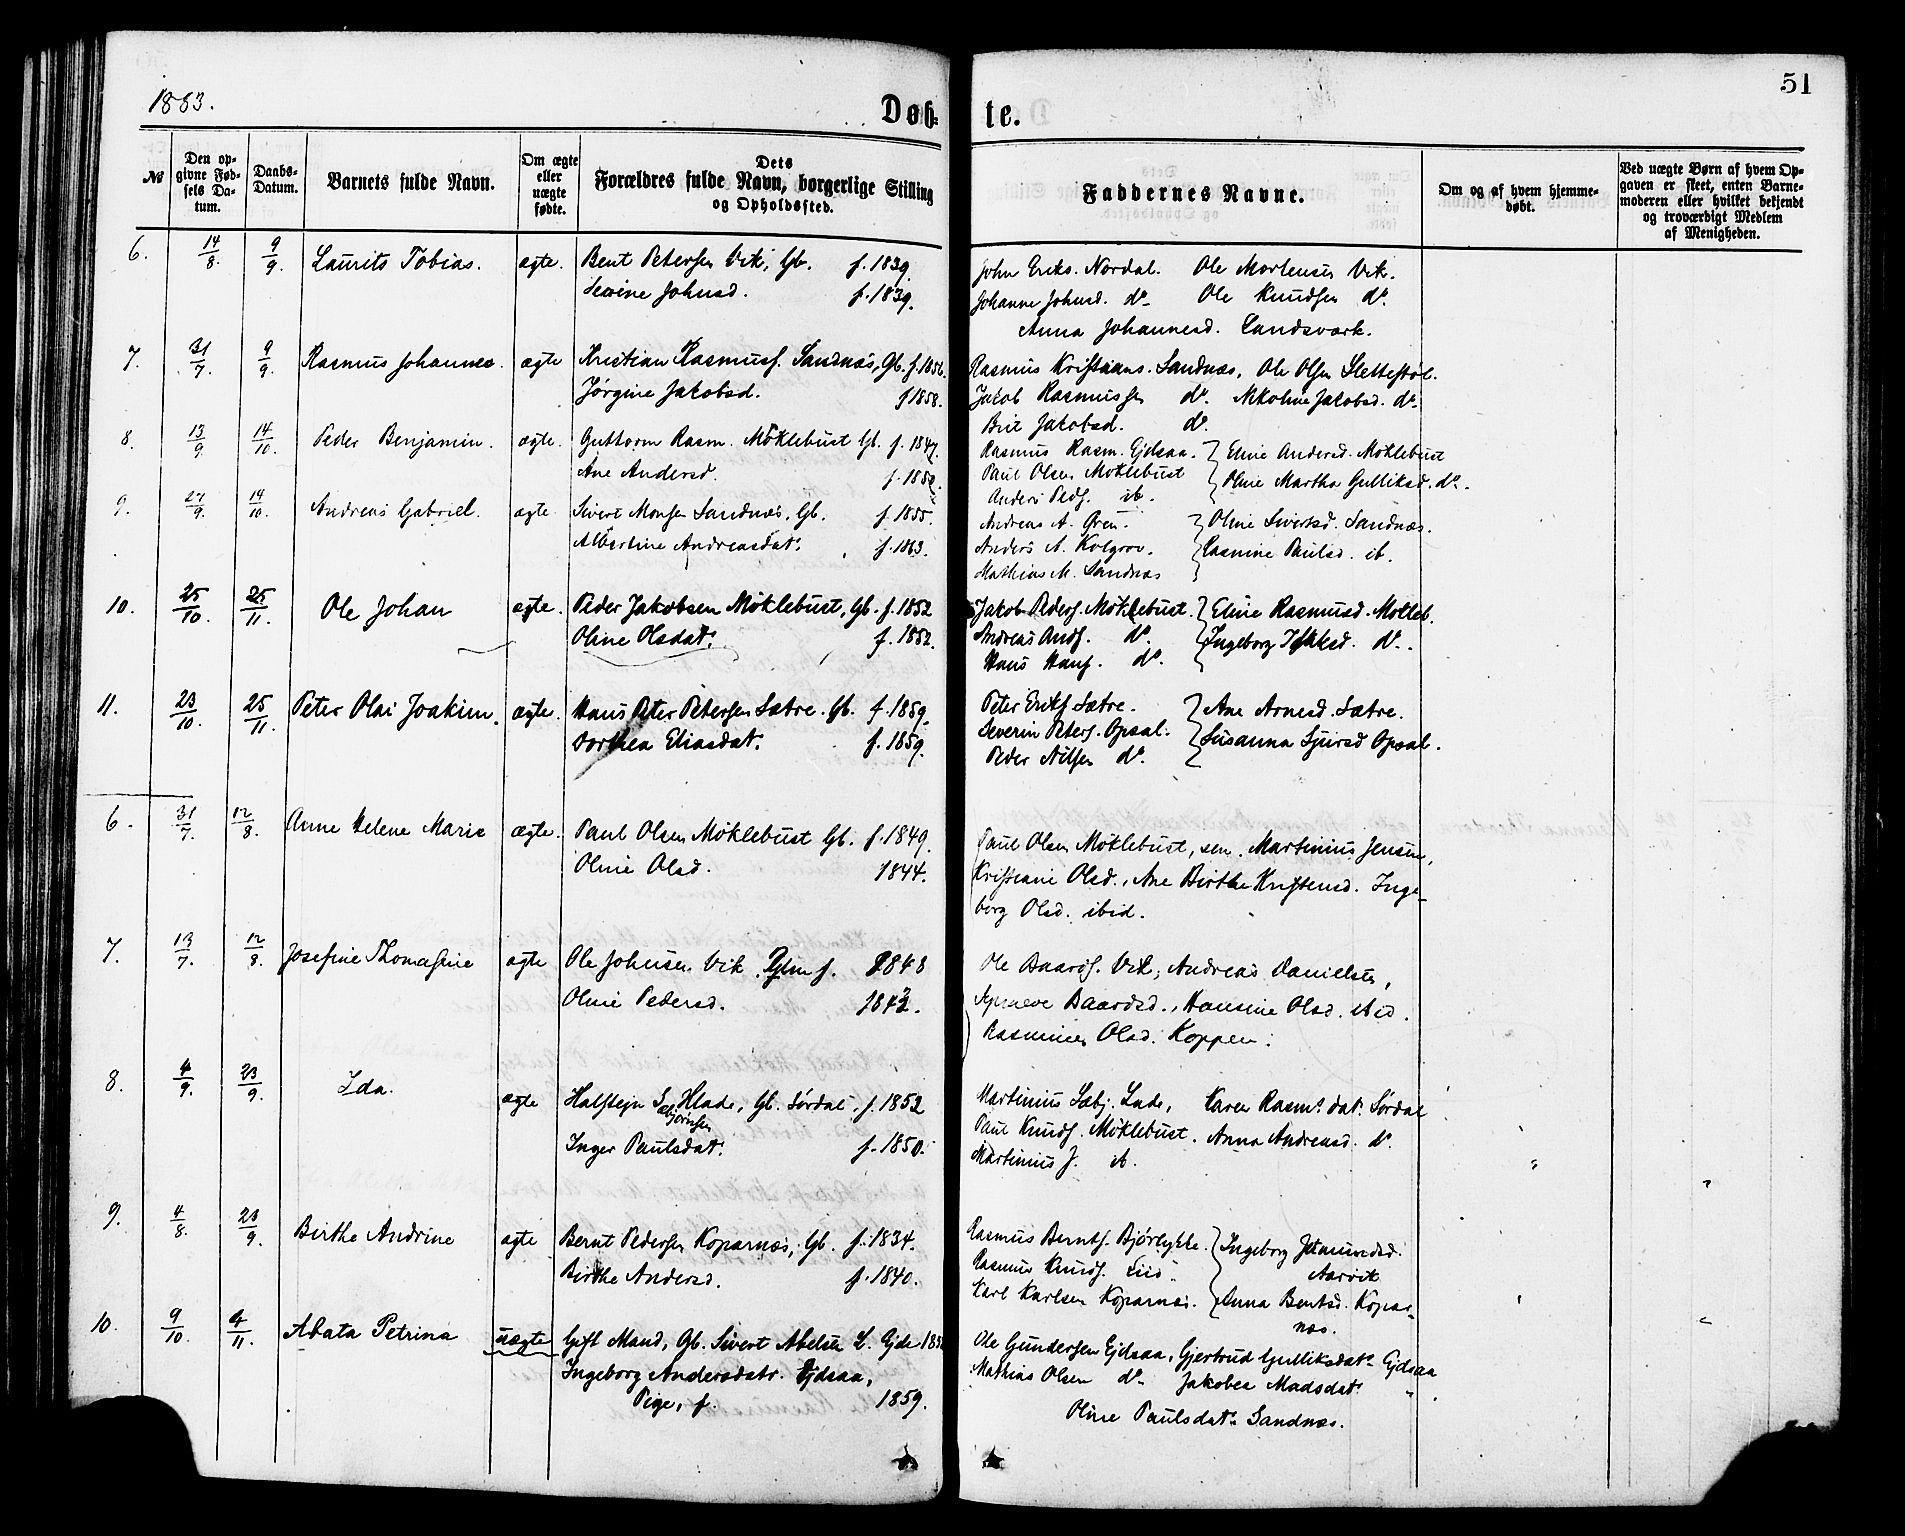 1883.
Døb-
te.
51
№
Den op-
givne Fød-
sels Da-
tum.
Daabs-
Datum.
Barnets fulde Navn.
Om ægte
eller
uægte
fødte.
Dets
Forældres fulde Navn, borgerlige Stilling
og Opholdssted.
Faddernes Navne.
Om og af hvem hjemme-
døbt.
Ved uægte Børn af hvem Op-
gaven er skeet, enten Barne-
moderen eller hvilket bekjendt
og troværdigt Medlem
af Menigheden.
6. 14/8. 9/9. Laurits Tobias. ægte. Bent Petersen Vik, Gb. f. 1839.
Johnsd. f. 1839.
John Eriks. Nordal. Ole Mortensen Vik.
Johanne Johnsd. do. Ole Knudsen do.
Anna Johannesd. Landsverk.
7. 31/7. 9/9. Rasmus Johannes. ægte Kristian Rasmuss. Sandnæs, Gb. f. 1856.
Jørgine Jakobsd. f 1858.
Rasmus Kristians. Sandnæs, Ole Olsen Slettestøl.
Jakob Rasmussen do. Nikoline Jakobsd. do.
Brit Jakobsd. do.
8. 13/9 14/10. Peder Benjamin. ægte. Guttorm Rasm. Møklebust Gb. f. 1847.
Ane Andersd. f.
Rasmus Rasm. Gjdsaa. Eline Andersd. Møklebust
Paul Olsen Møklebust Oline Martha Gulliksd. do.
Anders Peds. ib.
9. 27/9. 14/10. Andreas Gabriel. ægte Sivert Monsen Sandnæs, Gb. f. 1855.
Albertine Andreasdat. f. 1863.
Andreas A. Oline Sivertsd. Sandnæs.
Anders A. Kolgrov. Rasmine Paulsd. ib.
Mathias M. Sandnæs
10. 25/10. 25/11. Ole Johan ægte. Peder Jakobsen Møklebust, Gb. f. 1852
Oline Olsdat. f. 1852.
Jakob Peders. Møklebust. Eline Rasmusd. Mokleb.
Andreas Ands. do. Ingeborg do.
Hans Hans. do.
11. 23/10. 25/11. Peter Olai Joakim. ægte. Hans Peter Petersen Sætre. Gb. f. 1859.
Dorthea Eliasdat. f. 1859.
Peter Eriks. Sætre. Ane Arnesd. Sætre.
Severin Peters. Opsal. Susanna Sjursd Opsal.
Peder Nilsen do.
6. 31/7. 12/8. Anne Helene Marie ægte. Paul Olsen Møklebust Gb. f. 1849.
Oline Olsd. 1844.
Paul Olsen Møklebust, sen. Martinius Jensen,
Kristiane Olsd., Ane Birthe Kristensd. Inge-
borg Olsd. ibid.
7. 13/7. 12/8. Josefine Thomasine ægte Ole Johnsen Vik f. 1848
Oline Pedersd. 1842.
Ole Baards. Vik, Andreas Danielsen,
Baardsd., Hansine Olsd. ibid.
Olsd. Koppen.
8. 4/9. 23/9. Ida. ægte Halstejn Sæbjørnsen Hlade, Gb. Sørdal, f. 1852
Inger Paulsdat. f. 1850.
Martinius Sæbj. Lade, Karen Rasm. dat. Sørdal
Paul Knuds. Møklebust. Anna Andreasd. do.
Martinius J. ib.
9. 4/8. 23/9. Birthe Andrine ægte Bernt Pedersen Koparnæs, Gb. f. 1834.
Birthe Andersd. f. 1840.
Rasmus Bernts. Bjørlykke. Ingeborg
Rasmus Knuds. Eiid. Aarvik
Karl Karlsen Koparnæs. Anna Bentsd. Kopar-
næs.
10. 9/10. 4/11. Abata Petrina uægte Gift Mand, Gb. Sivert Abelsen L. Gjds
Ingeborg Andersdatr. Gjdsaa,
Pige, f. 1859.
Ole Gundersen Gjdsaa, Gjertrud Gulliksdat. Gjdsaa
Mathias Olsen do. Jakobea Madsdat. "
Oline Paulsdat. Sandnæs.